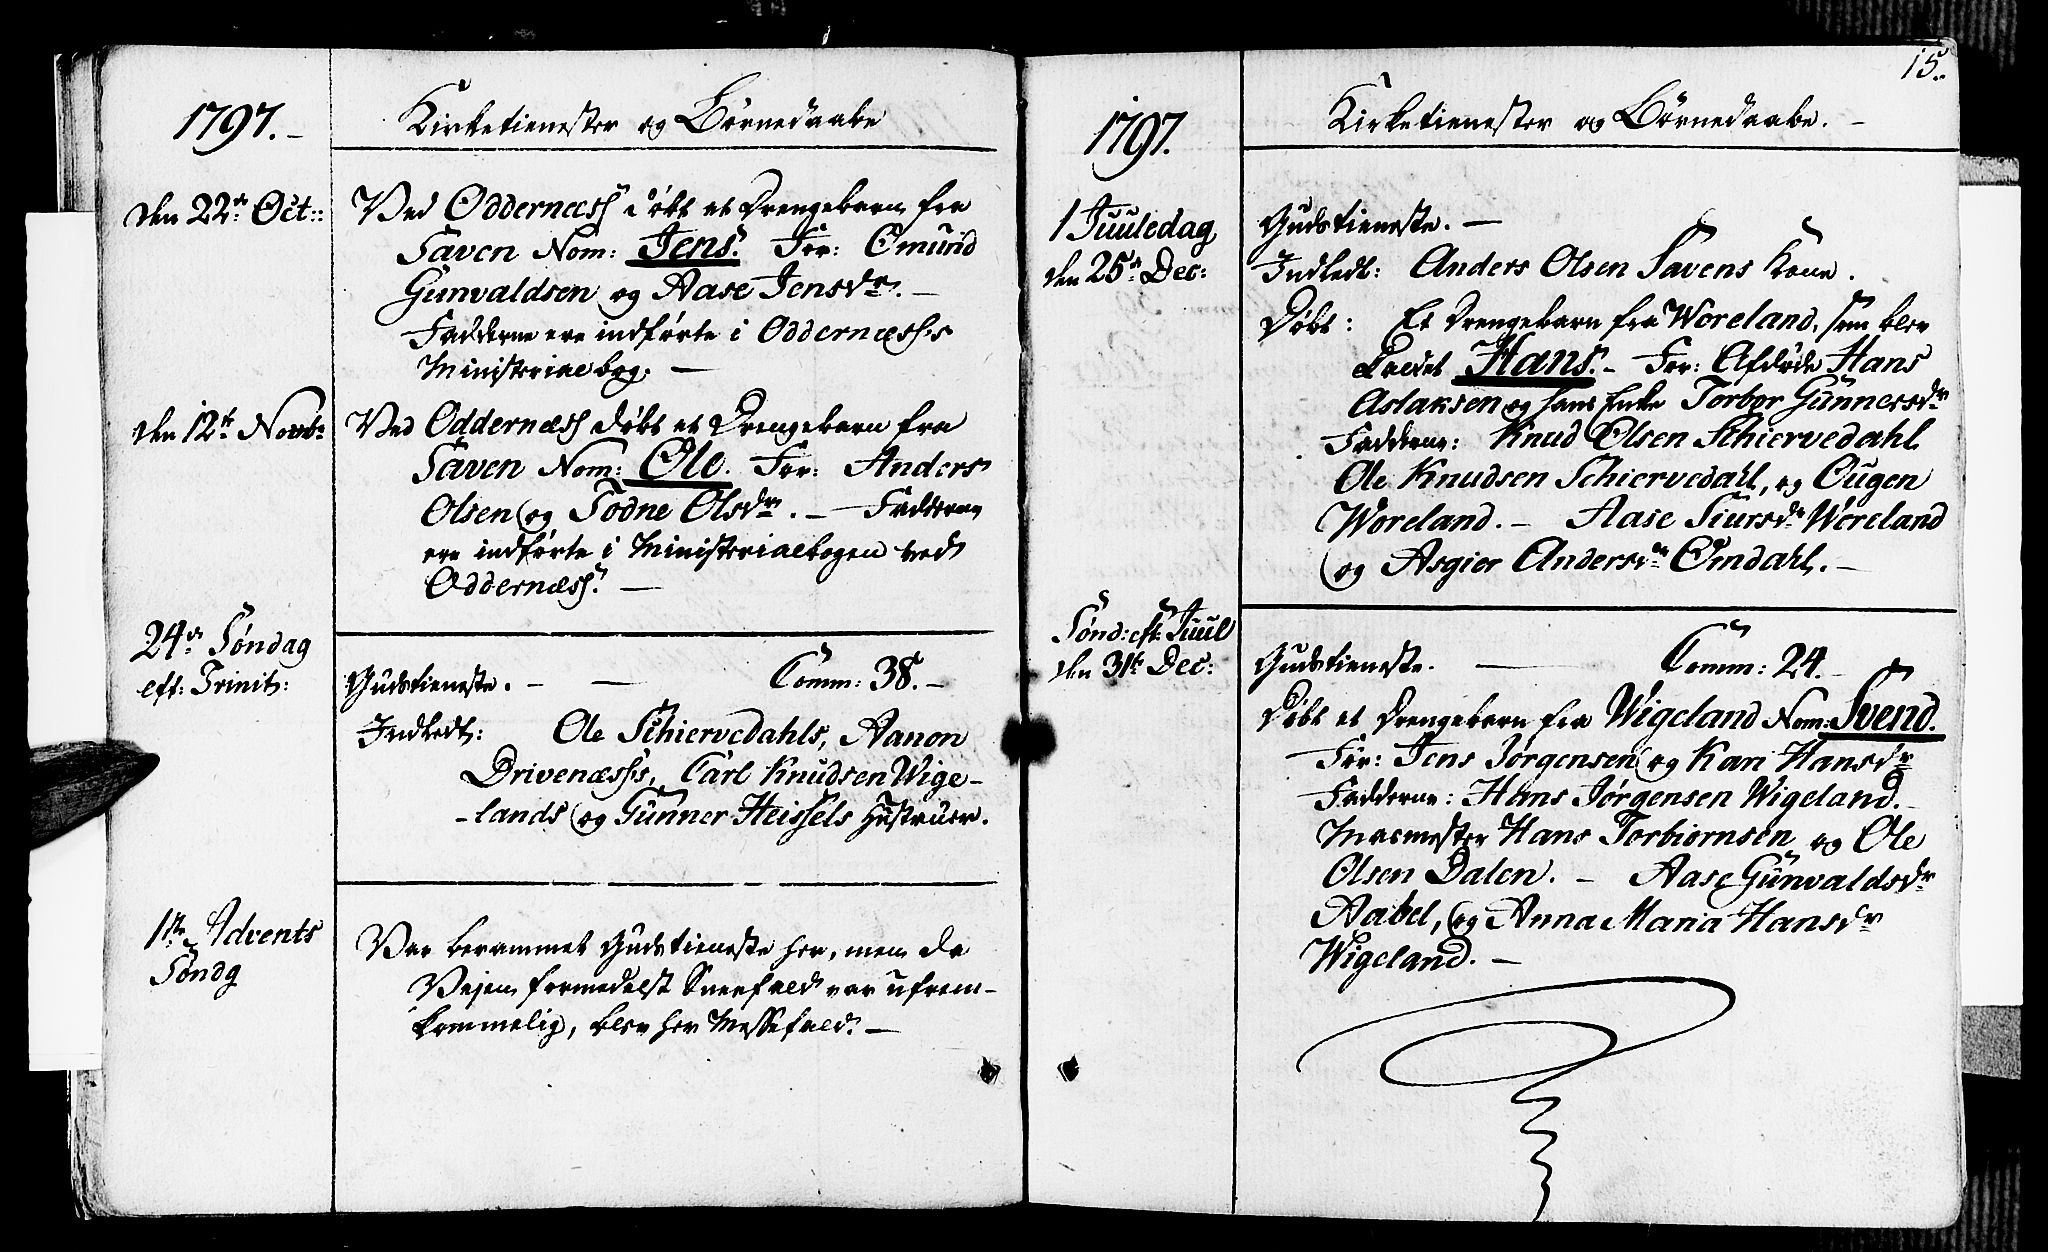 1797.
Kirketienester og Børnedaabe
den 22de Oct::
Ved Oddernæss døbt et Drengebarn fra
Saven Nom: Jens. For: Omund
Gunvaldsen og Aase Jensdr. —
Fadderne ere indførte i Oddernæss's
Ministerialbog. —
den 12te Novbr
Ved Oddernæss døbt et Drengebarn fra
Saven Nom: Ole. For: Anders
Olsen og Todne Olsdr. — Fadderne
ere indførte i Ministerialbogen ved
Oddernæss. —
24de Søndag
eft: Trinit:
Gudstieneste. — — Comm: 38. —
Indledt: Ole Schiervedahls, Aanon
Drivenæss's, Carl Knudsen Wige-
-lands og Gunner Heissels Hustruer.
1ste Advents
Søndg
Var berammet Gudstieneste her, men da
Vejen formedelst Sneefald var ufrem-
kommelig, blev her Messefald. —
15.
1797.
Kirketienester og Børnedaabe. —
1 Juuledag
den 25de Dec:
Gudstieneste. —
Indledt: Anders Olsen Savens Kone.
Døbt: Et Drengebarn fra Woreland, som blev
kaldet Hans. — For: Afdøde Hans
Aslaksen og hans Enke Torbor Gunnersdr
Fadderne: Knud Olsen Schiervedahl
Ole Knudsen Schiervedahl, og Ougen
Woreland. — Aase Siursdr Woreland
og Asgier Andersdr Omdahl. —
Sønd: eft: Juul
den 31te Dec:
Gudstieneste. — Comm: 24. —
Døbt et Drengebarn fra Wigeland Nom: Svend.
For: Jens Jørgensen og Kari Hansdr
Fadderne: Hans Jørgensen Wigeland. —
Masmester Hans Torbiørnsen og Ole
Olsen Dalen. — Aase Gunvaldsdr
Aabel, og Anna Maria Hansdr
Wigeland. —